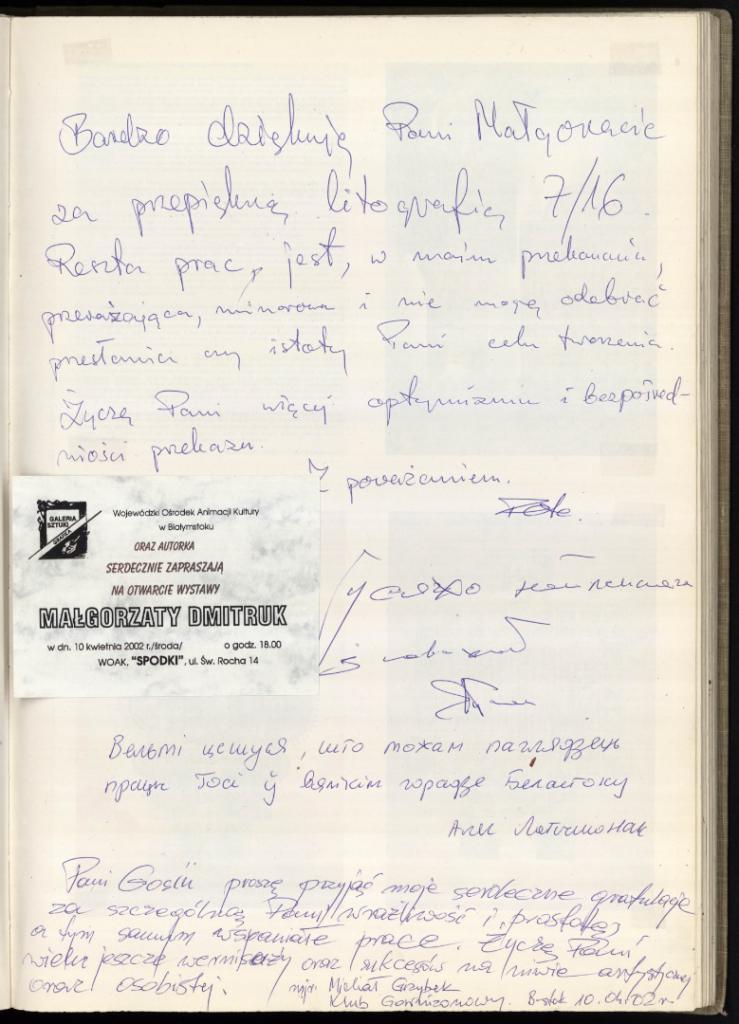 Bardzo dziękuję Pani Małgorzacie
za przepiękną litografię 7/16.
Reszta prac, jest, w moim przekonaniu,
przerażająca, minorowa i nie mogę odebrać
przesłania czy istoty Pani celu tworzenia.
Życzę Pani więcej optymizmu i bezpośred-
niości przekazu.
Z poważaniem.
GALERIA
SZTUKI
Wojewódzki Ośrodek Animacji Kultury
w Białymstoku
ORAZ AUTORKA
SERDECZNIE ZAPRASZAJĄ
NA OTWARCIE WYSTAWY
MAŁGORZATY DMITRUK
w dn. 10 kwietnia 2002 r./środa/ o godz. 18.00
WOAK, "SPODKI", ul. Św. Rocha 14
Вельмі цешуся, што можам паглядзець
працы Госі ў вялікім горадзе Беластоку
Pani Gosiu proszę przyjąć moje serdeczne gratulacje
za szczególną Pani wrażliwość i "prostotę"
a tym samym wspaniałe prace. Życzę Pani
wielu jeszcze wernisaży oraz sukcesów na niwie artystycznej
oraz osobistej. mjr. Michał Grzybek
Klub Garnizonowy. B-stok 10.04.02 r.